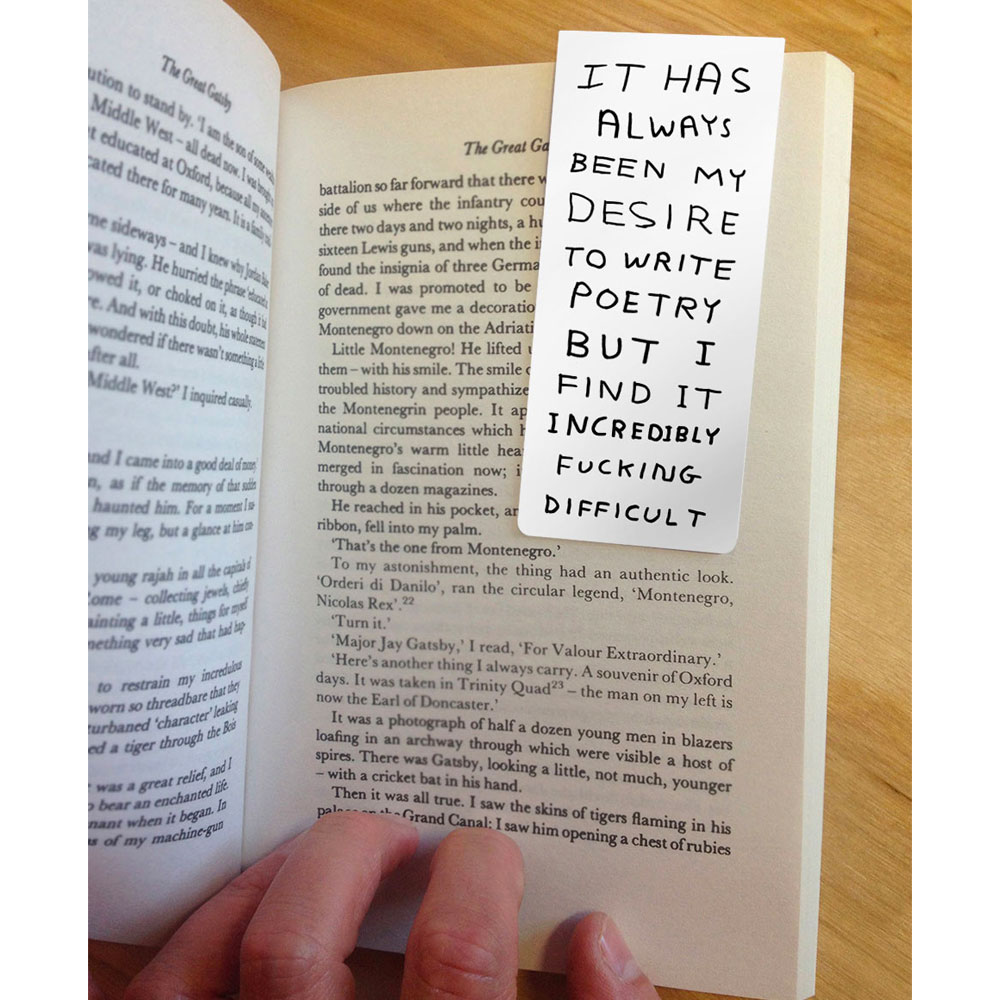 The Great Gatsby
ution to stand by. 'I am the son of some
Middle West – all dead now. I was brought
educated at Oxford, because all my
cated there for many years. It is a family
me sideways – and I knew why Jordan
was lying. He hurried the phrase 'educated
owed it, or choked on it, as though it had
re. And with this doubt, his whole statement
wondered if there wasn't something a little
after all.
Middle West?' I inquired casually.
and I came into a good deal of money.'
n, as if the memory of that sudden
haunted him. For a moment I
g my leg, but a glance at him
young rajah in all the capitals of
ome – collecting jewels, chiefly
ainting a little, things for myself
mething very sad that had hap-
to restrain my incredulous
worn so threadbare that they
turbaned 'character' leaking
ed a tiger through the Bois
was a great relief, and I
o bear an enchanted life.
nant when it began. In
s of my machine-gun
The Great Ga
battalion so far forward that there w
side of us where the infantry cou
there two days and two nights, a hu
sixteen Lewis guns, and when the i
found the insignia of three Germa
of dead. I was promoted to be
government gave me a decoratio
Montenegro down on the Adriati
Little Montenegro! He lifted
them – with his smile. The smile
troubled history and sympathize
the Montenegrin people. It ap
national circumstances which
Montenegro's warm little hea
merged in fascination now; i
through a dozen magazines.
He reached in his pocket, an
ribbon, fell into my palm.
'That's the one from Montenegro.'
To my astonishment, the thing had an authentic look.
'Orderi di Danilo', ran the circular legend, 'Montenegro,
Nicolas Rex'.22
'Turn it.'
'Major Jay Gatsby,' I read, 'For Valour Extraordinary.'
'Here's another thing I always carry. A souvenir of Oxford
days. It was taken in Trinity Quad23 – the man on my left is
now the Earl of Doncaster.'
It was a photograph of half a dozen young men in blazers
loafing in an archway through which were visible a host of
spires. There was Gatsby, looking a little, not much, younger
– with a cricket bat in his hand.
Then it was all true. I saw the skins of tigers flaming in his
palace on the Grand Canal; I saw him opening a chest of rubies
IT HAS
ALWAYS
BEEN MY
DESIRE
TO WRITE
POETRY
BUT I
FIND IT
INCREDIBLY
FUCKING
DIFFICULT